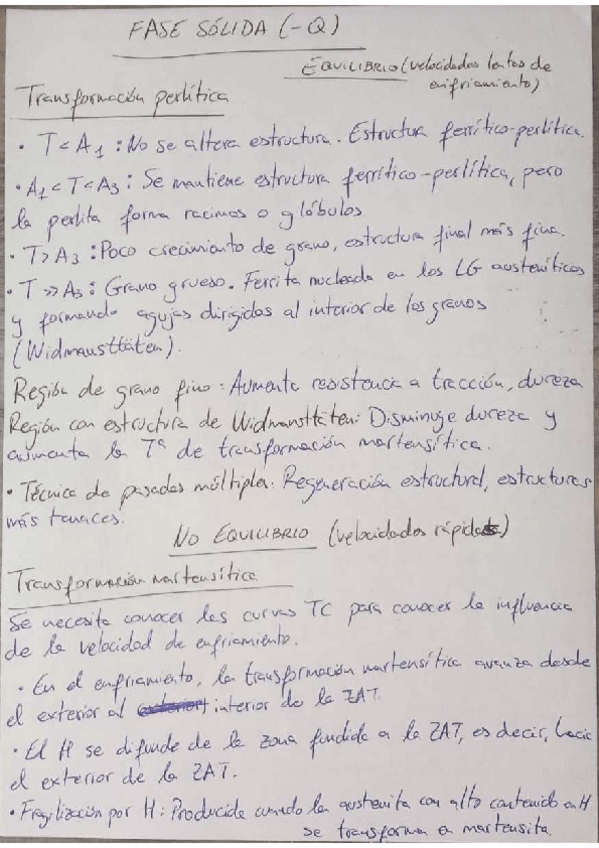 FASE SÓLIDA (-Q)
EQUILIBRIO (velocidades lentas de
enfriamiento)
Transformación perlítica
• T < A1 : No se altera estructura. Estructura ferrítico-perlítica.
• A1 < T < A3 : Se mantiene estructura ferrítico-perlítica, pero
la perlita forma racimos o glóbulos
• T > A3 : Poco crecimiento de grano, estructura final más fina.
• T >> A3 : Grano grueso. Ferrita nucleada en los LG austeníticos
y formando agujas dirigidas al interior de los granos
(Widmausttäten).
Región de grano fino: Aumenta resistencia a tracción, dureza
Región con estructura de Widmansttäten: Disminuye dureza y
aumenta la Tª de transformación martensítica.
• Técnica de pasadas múltiples: Regeneración estructural, estructuras
más tenaces.
NO EQUILIBRIO (velocidades rápidas)
Transformación martensítica
Se necesita conocer las curvas TC para conocer la influencia
de la velocidad de enfriamiento.
• En el enfriamiento, la transformación martensítica avanza desde
el exterior al interior de la ZAT.
• El H se difunde de la zona fundida a la ZAT, es decir, hacia
el exterior de la ZAT.
• Fragilización por H: Producida cuando la austenita con alto contenido en H
se transforma en martensita.